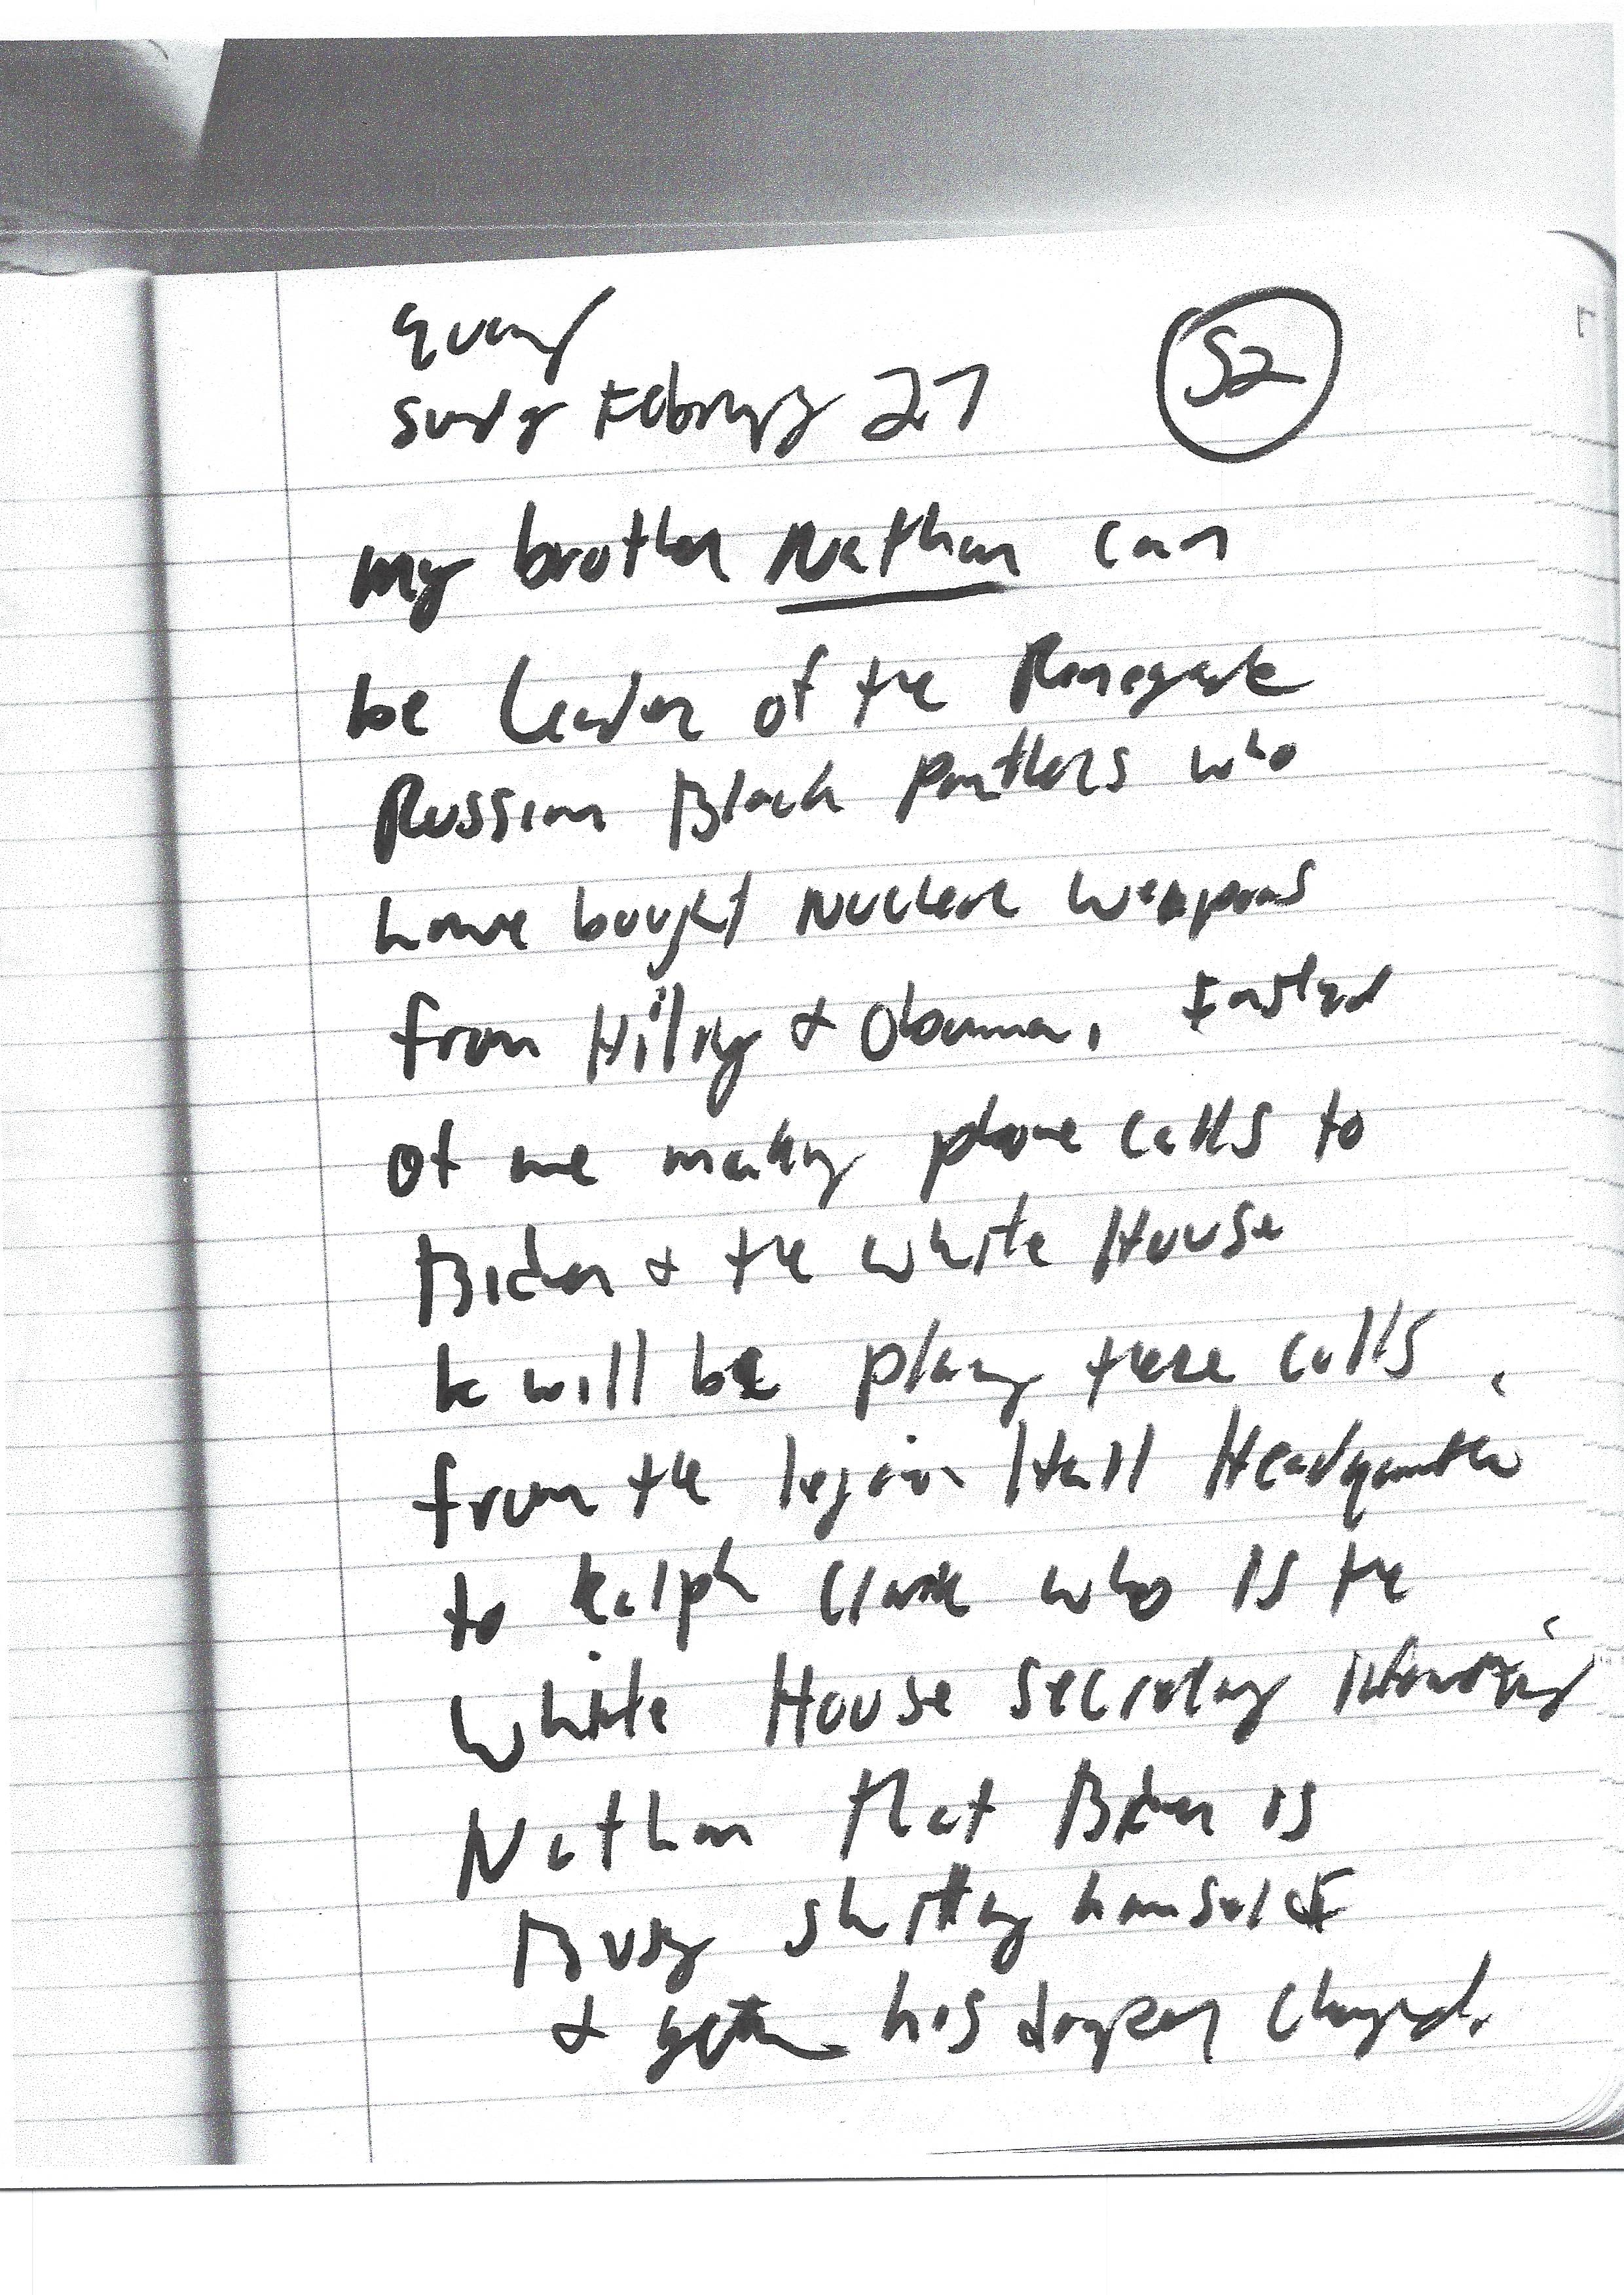 52
Sunday February 27
My brother Nathan can
be leader of the Renegade
Russian Black Panthers who
have bought Nuclear weapons
from Hillry & Obamma, Instead
of me making phone calls to
Biden & the White House
he will be placing these calls
from the legion Hall Headquarters
to Ralph Clark who is the
White House Secretary informing
Nathan that Biden is
Busy shitting himself
& getting his diaper changed.